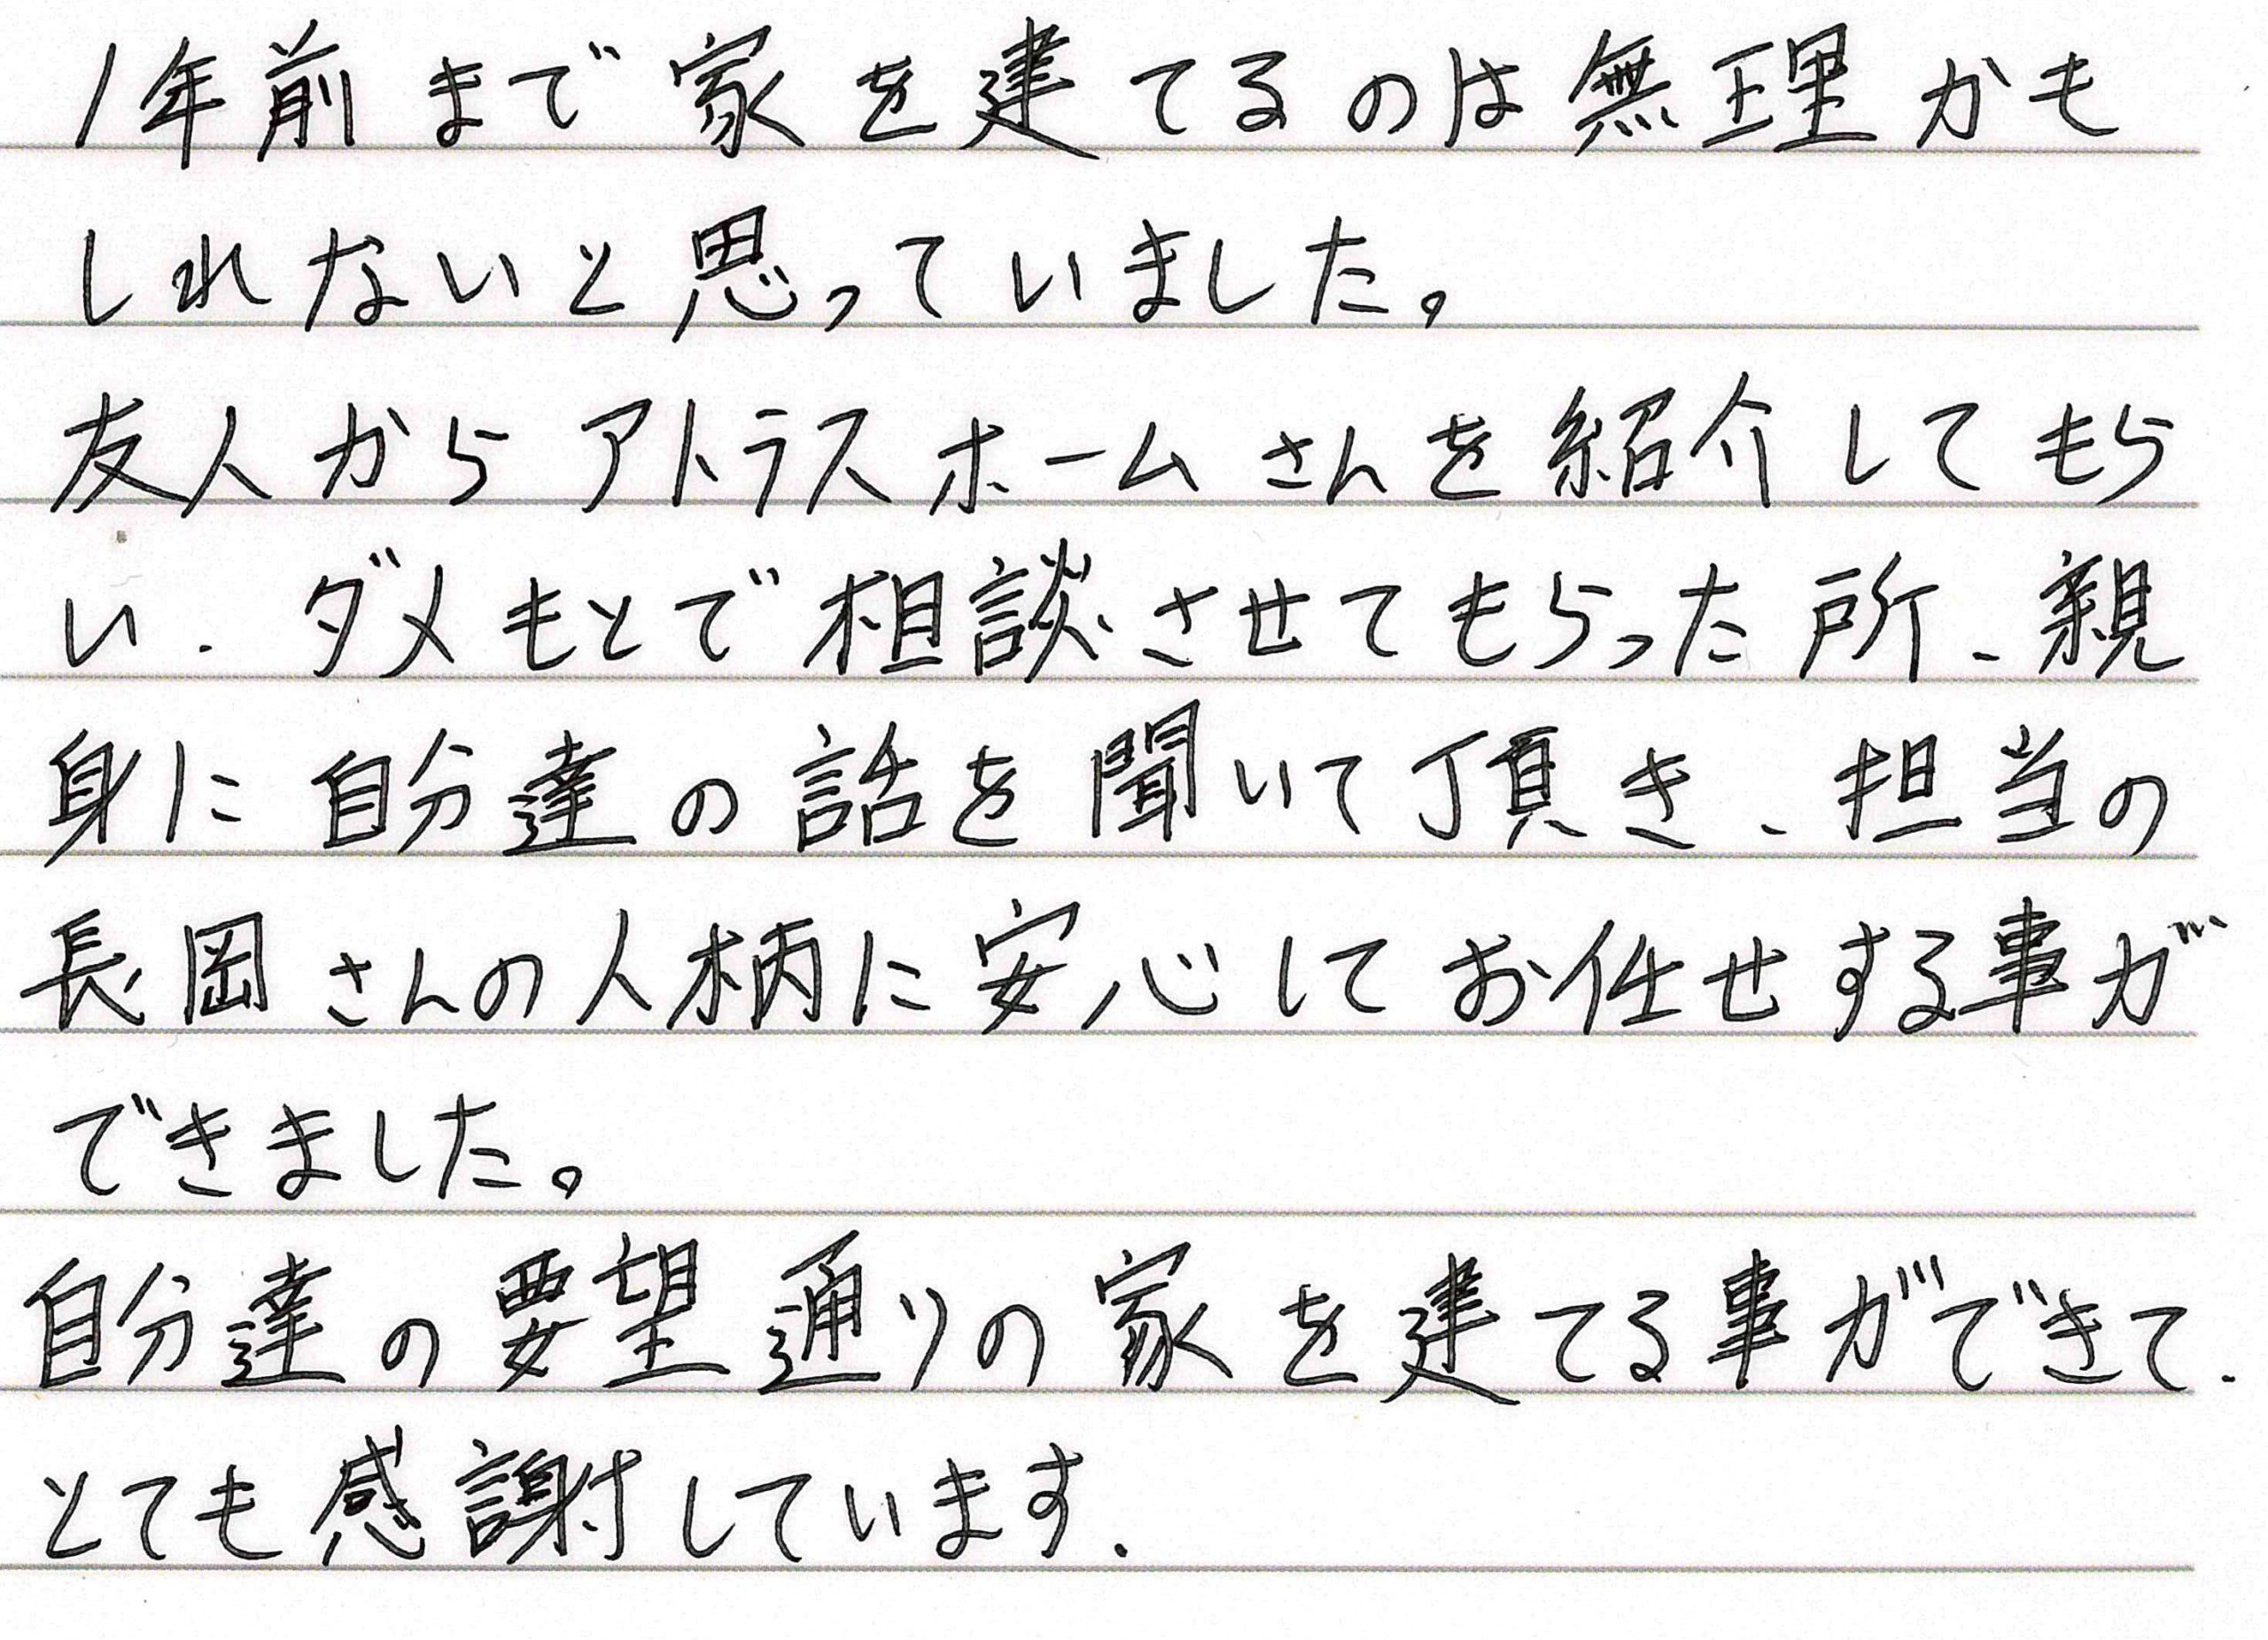 1年前まで家を建てるのは無理かも
しれないと思っていました。
友人からアトラスホームさんを紹介してもら
い、ダメもとで相談させてもらった所、親
身に自分達の話を聞いて頂き、担当の
長岡さんの人柄に安心してお任せする事が
できました。
自分達の要望通りの家を建てる事ができて、
とても感謝しています.